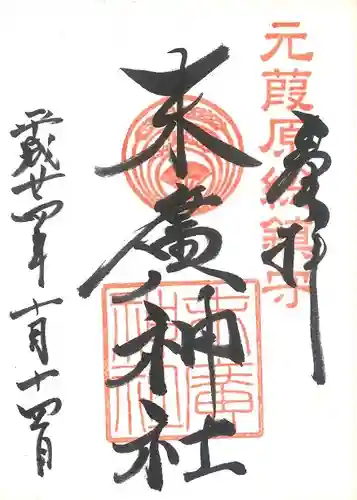 元葭原総鎮守
奉拝
末廣神社
末廣神社
平成廿四年十月十四日